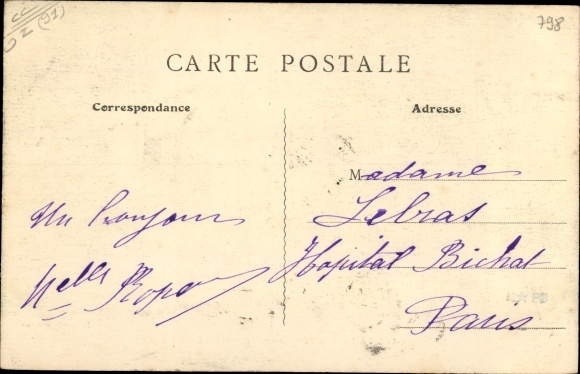 798
CARTE POSTALE
Correspondance
Adresse
Un bonjour
Madame
Lebras
Hopital Bichat
Paris